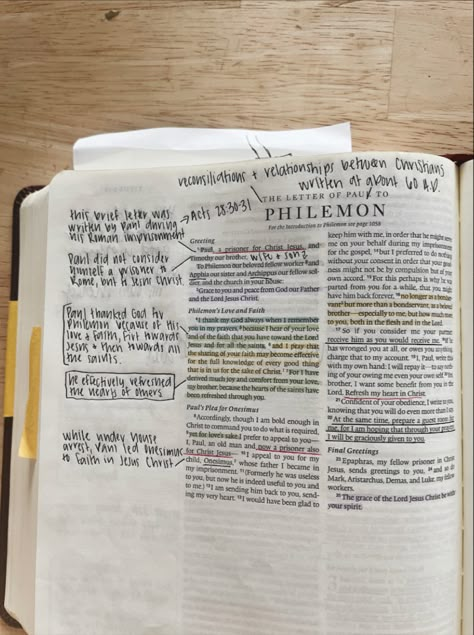 reconsiliations + relationships between Christians
written at about 60 A.D.
this brief letter was
written by Paul during
his Roman imprisonment
Acts 28:30-31
Paul did not consider
himself a prisoner to
Rome, but to Jesus Christ.
Paul thanked God for
Philemon because of his
love & faith, first towards
Jesus & then towards all
the saints.
he effectively refreshed
the hearts of others
while under house
arrest, Paul led Onesimus
to faith in Jesus Christ
THE LETTER OF PAUL TO
PHILEMON
For the Introduction to Philemon see page
Greeting
1 Paul, a prisoner for Christ Jesus, and
Timothy our brother, wife + son?
To Philemon our beloved fellow worker 2 and
Apphia our sister and Archippus our fellow sol-
dier, and the church in your house:
3 Grace to you and peace from God our Father
and the Lord Jesus Christ.
Philemon's Love and Faith
4 I thank my God always when I remember
you in my prayers, 5 because I hear of your love
and of the faith that you have toward the Lord
Jesus and for all the saints, 6 and I pray that
the sharing of your faith may become effective
for the full knowledge of every good thing
that is in us for the sake of Christ. 7 For I have
derived much joy and comfort from your love,
my brother, because the hearts of the saints have
been refreshed through you.
Paul's Plea for Onesimus
8 Accordingly, though I am bold enough in
Christ to command you to do what is required,
9 yet for love's sake I prefer to appeal to you—
I, Paul, an old man and now a prisoner also
for Christ Jesus— 10 I appeal to you for my
child, Onesimus, whose father I became in
my imprisonment. 11 (Formerly he was useless
to you, but now he is indeed useful to you and
to me.) 12 I am sending him back to you, send-
ing my very heart. 13 I would have been glad to
keep him with me, in order that he might serve
me on your behalf during my imprisonment
for the gospel, 14 but I preferred to do nothing
without your consent in order that your good-
ness might not be by compulsion but of your
own accord. 15 For this perhaps is why he was
parted from you for a while, that you might
have him back forever, 16 no longer as a bonds-
vant but more than a bondservant, as a beloved
brother—especially to me, but how much more
to you, both in the flesh and in the Lord.
17 So if you consider me your partner,
receive him as you would receive me. 18 If he
has wronged you at all, or owes you anything,
charge that to my account. 19 I, Paul, write this
with my own hand: I will repay it—to say noth-
ing of your owing me even your own self.
brother, I want some benefit from you in the
Lord. Refresh my heart in Christ.
21 Confident of your obedience, I write to you,
knowing that you will do even more than I
22 At the same time, prepare a guest room for
me, for I am hoping that through your prayers
I will be graciously given to you.
Final Greetings
23 Epaphras, my fellow prisoner in Christ
Jesus, sends greetings to you, 24 and so do
Mark, Aristarchus, Demas, and Luke, my fellow
workers.
25 The grace of the Lord Jesus Christ be with
your spirit.